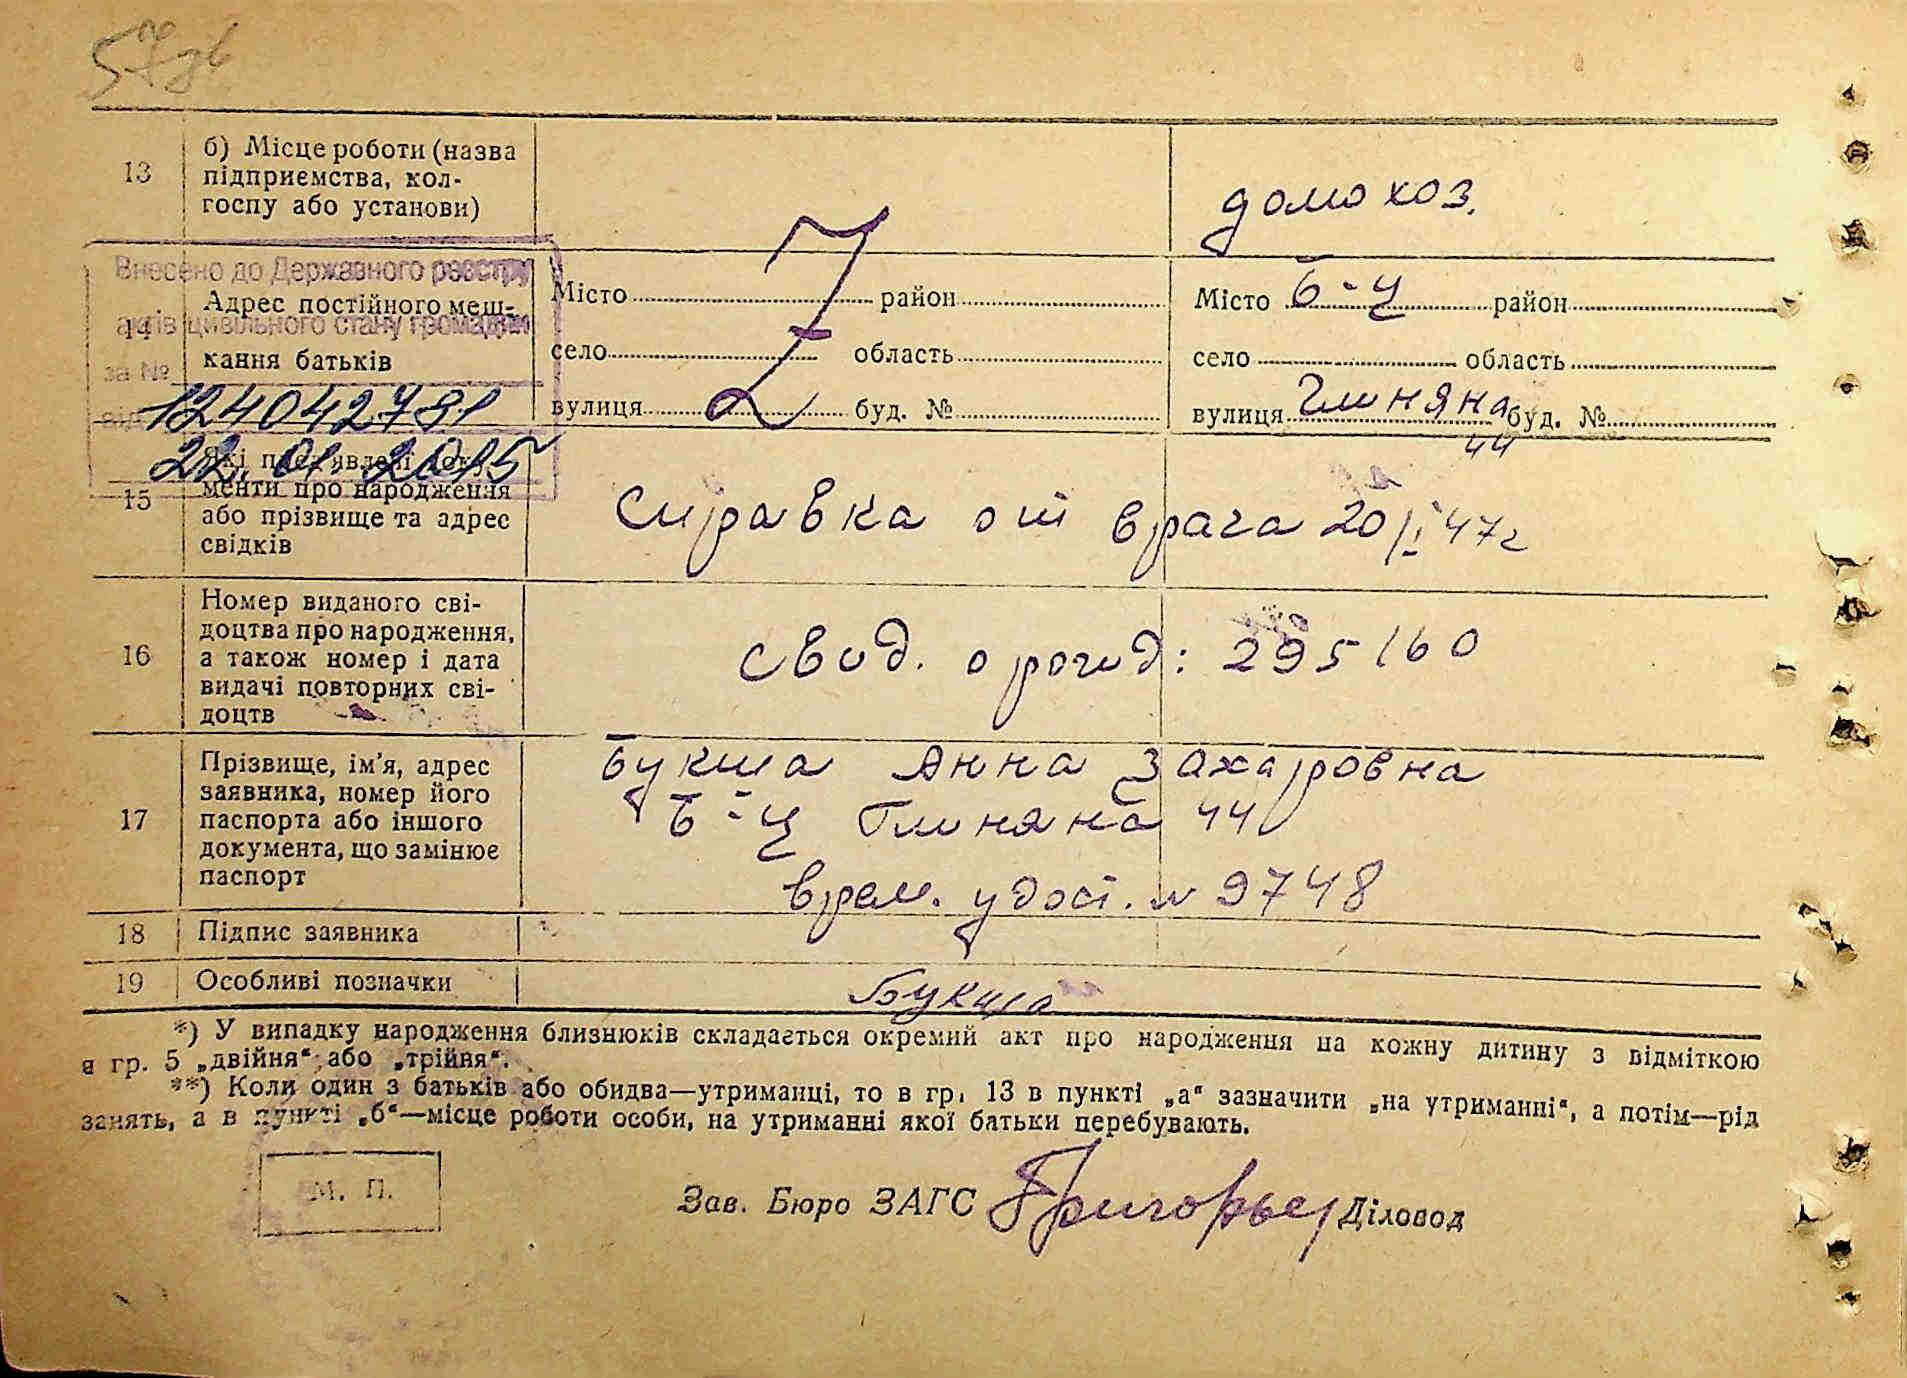 57
13
б) Місце роботи (назва
підприємства, кол-
госпу або установи)
домохоз.
Внесено до Державного реєстру
актів цивільного стану громадян
за №
від
124042781
22.01.2015
14
Адрес постійного меш-
кання батьків
Місто район
село область
вулиця буд. №
Місто Б-Ц район
село область
вулиця Глиняна буд. №
44
15
Які пред'явлені доку-
менти про народження
або прізвище та адрес
свідків
Справка от врача 20/I 47 г
16
Номер виданого сві-
доцтва про народження,
а також номер і дата
видачі повторних сві-
доцтв
свид. о рожд: 295160
17
Прізвище, ім'я, адрес
заявника, номер його
паспорта або іншого
документа, що замінює
паспорт
Букша Анна Захаровна
Б-Ц Глиняна 44
врем. удост. № 9748
18
Підпис заявника
19
Особливі позначки
Букша
*) У випадку народження близнюків складається окремий акт про народження на кожну дитину з відміткою
в гр. 5 „двійня“ або „трійня“.
**) Коли один з батьків або обидва—утриманці, то в гр. 13 в пункті „а“ зазначити „на утриманні“, а потім—рід
занять, а в пункті „б“—місце роботи особи, на утриманні якої батьки перебувають.
М. П.
Зав. Бюро ЗАГС Григорьев Діловод